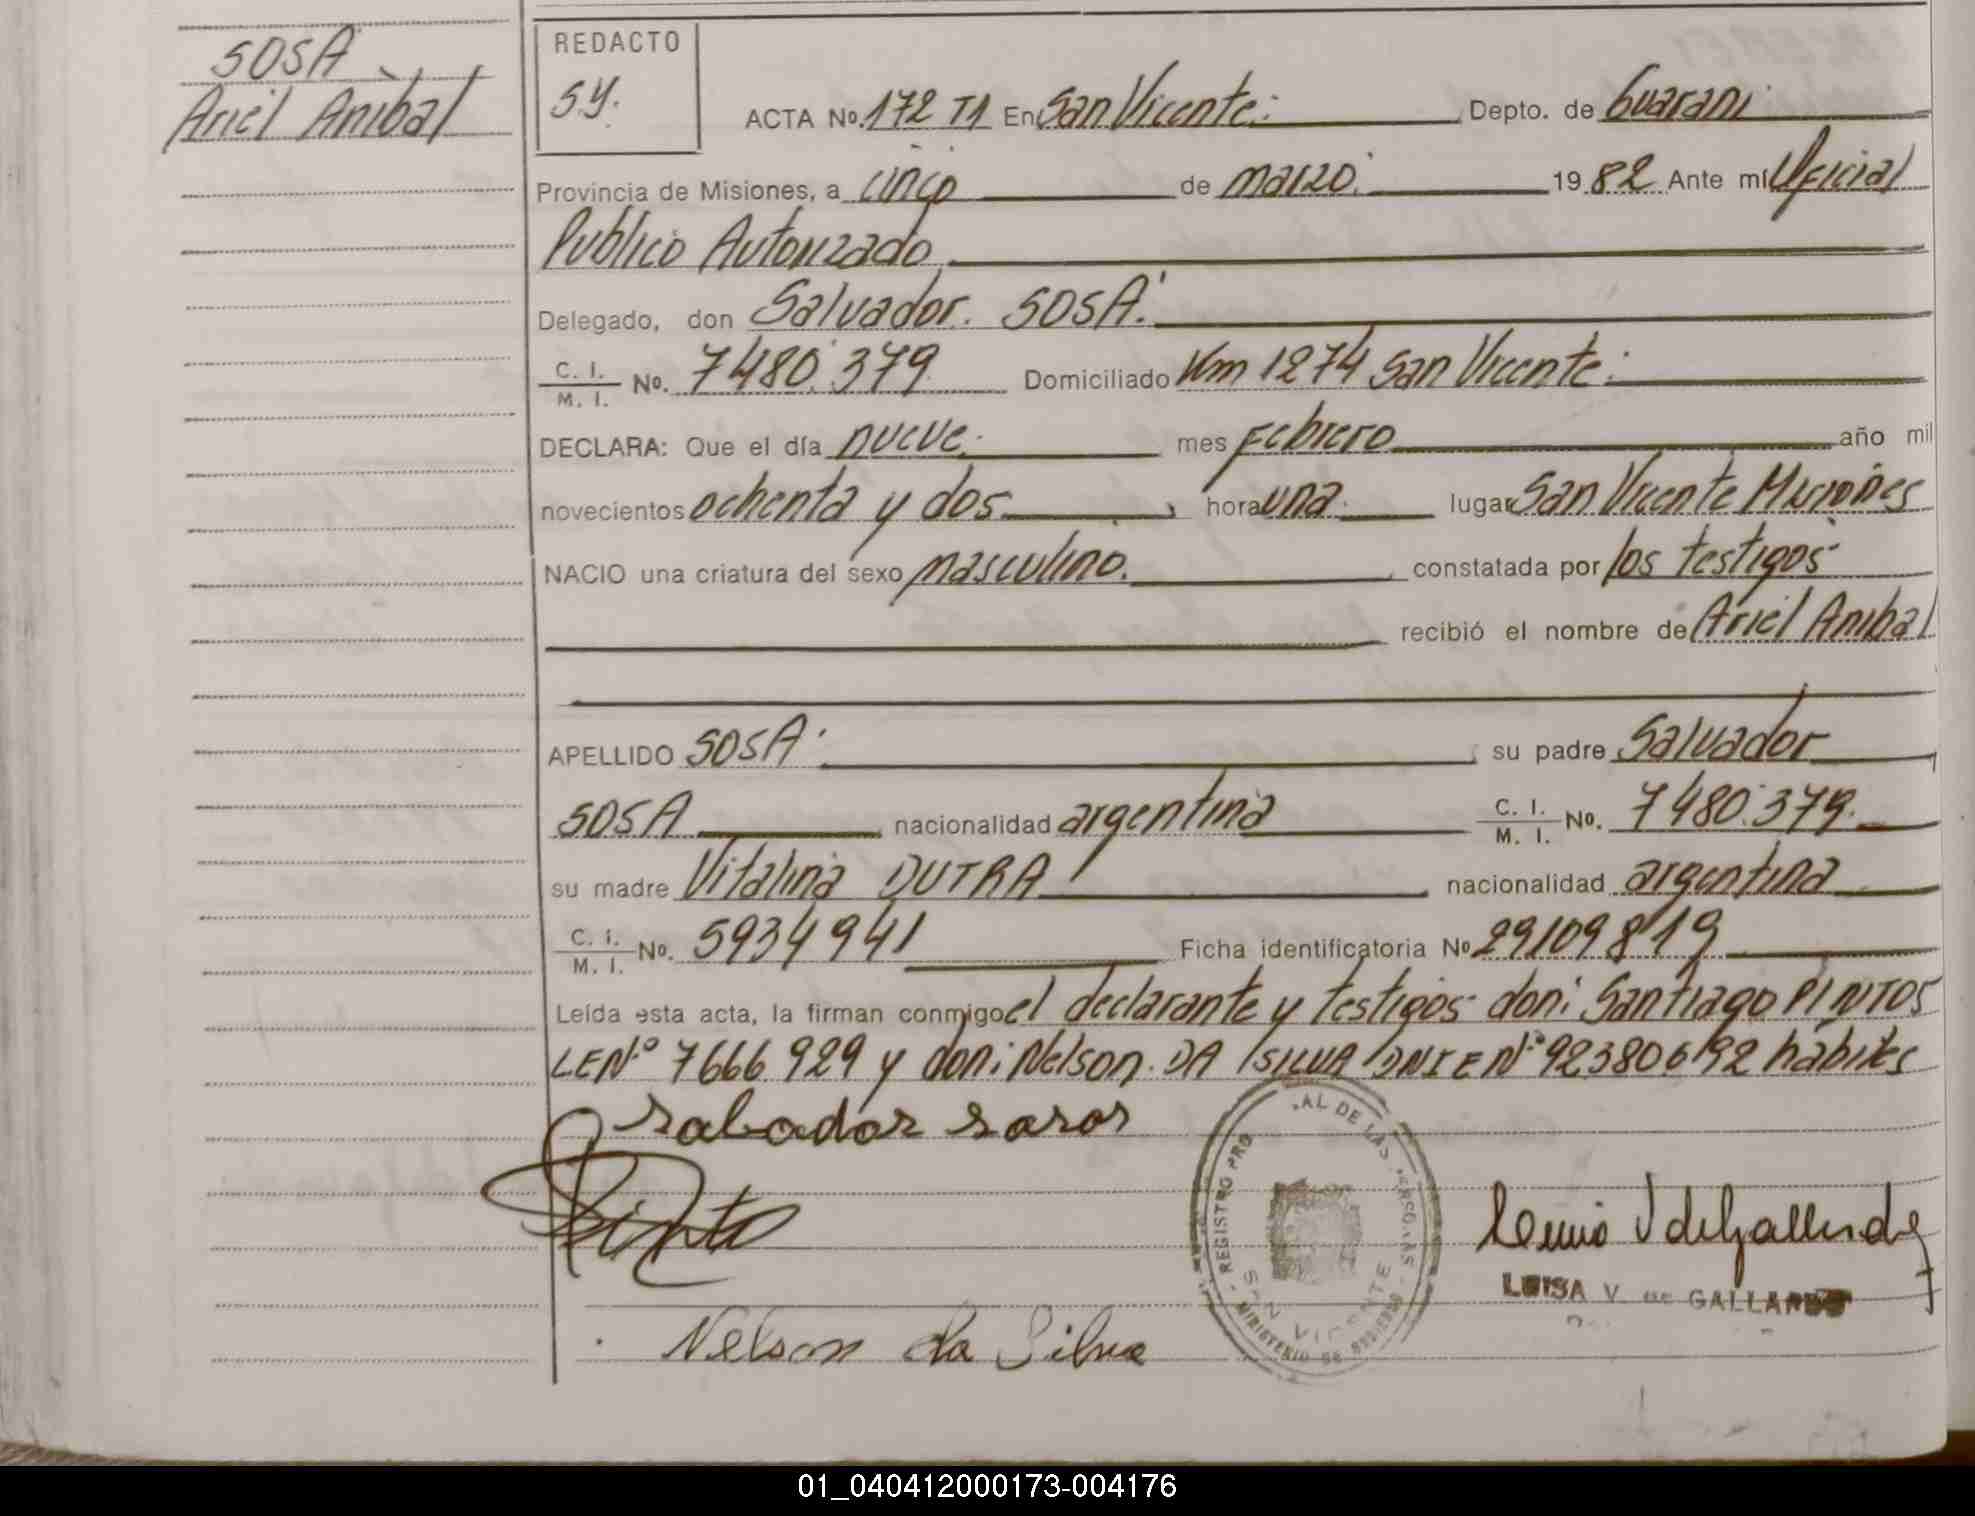 SOSA
Ariel Anibal
REDACTO
SY.
ACTA No. 172 T1 En San Vicente: Depto. de Guarani
Provincia de Misiones, a cinco de marzo. 1982 Ante mí Oficial
Publico Autorizado
Delegado, don Salvador. SOSA.
C. I. / M. I. No. 7480.379 Domiciliado Km 1274 San Vicente:
DECLARA: Que el día nueve. mes Febrero año mil
novecientos ochenta y dos , hora una. lugar San Vicente Misiones
NACIO una criatura del sexo masculino. , constatada por los testigos
recibió el nombre de Ariel Anibal
APELLIDO SOSA , su padre Salvador
SOSA , nacionalidad argentina C. I. / M. I. No. 7480.379.
su madre Vitalina DUTRA , nacionalidad argentina
C. I. / M. I. No. 5934941 Ficha identificatoria No 29109819
Leída esta acta, la firman conmigo el declarante y testigos don: Santiago PINTOS
LE Nº 7666.929 y don: Nelson. DA SILVA DNIE Nº 92380692 hábiles
Sabador sasos
Pinto
REGISTRO PRO .AL DE LAS PERSONAS
SAN VICENTE
MINISTERIO DE GOBIERNO
LUISA V. DE GALLARDO
Nelson da Silva
01_040412000173-004176